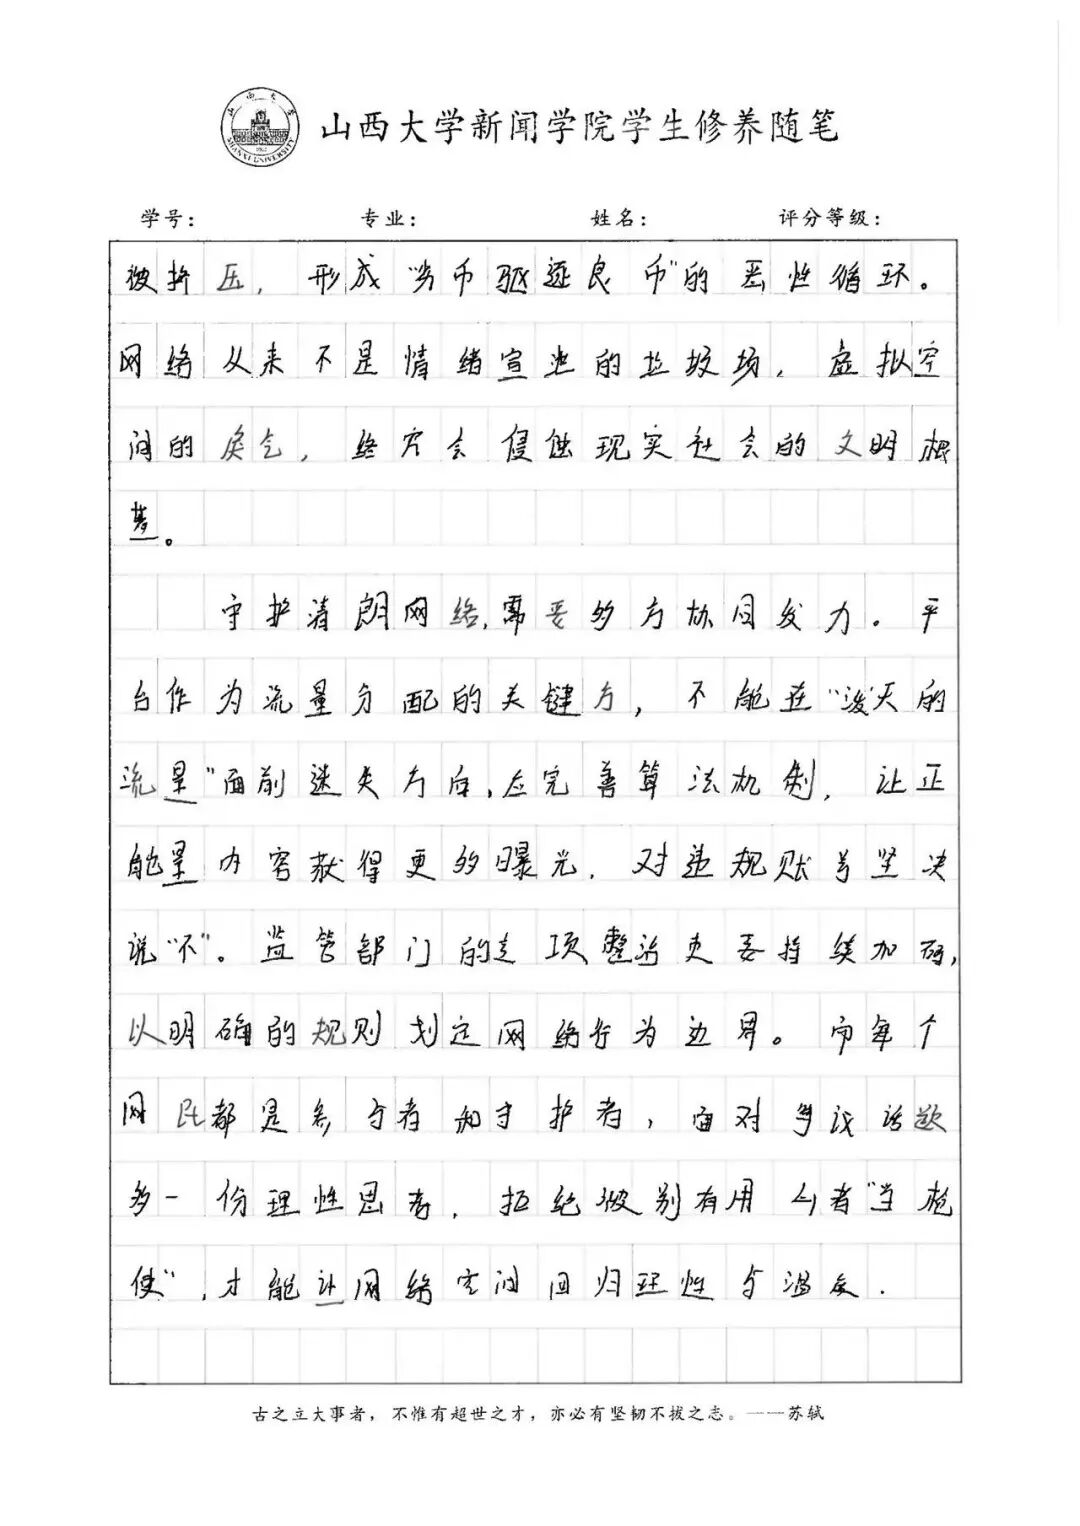 山西大学
SHANXI UNIVERSITY
1902
山西大学新闻学院学生修养随笔
学号： 专业： 姓名： 评分等级：
被挤压，形成“劣币驱逐良币”的恶性循环。
网络从来不是情绪宣泄的垃圾场，虚拟空
间的戾气，终究会侵蚀现实社会的文明根
基。
守护清朗网络，需要多方协同发力。平
台作为流量分配的关键方，不能在“泼天的
流量”面前迷失方向，应完善算法机制，让正
能量内容获得更多曝光，对违规账号坚决
说“不”。监管部门的专项整治更要持续加码，
以明确的规则划定网络行为边界。而每个
网民都是参与者和守护者，面对争议话题
多一份理性思考，拒绝被别有用心者“当枪
使”，才能让网络空间回归理性与温度．
古之立大事者，不惟有超世之才，亦必有坚韧不拔之志。——苏轼